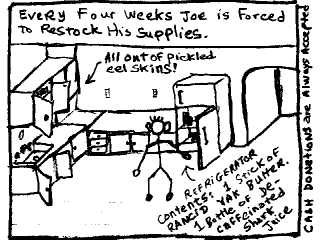 Every Four Weeks Joe is Forced
to Restock His Supplies.
All out of pickled
eel skins!
REFRIGERATOR
Contents: 1 Stick of
RANCID YAK Butter.
1 Bottle of De-
caffeinated
Shark
Juice
CASH DONATIONS are Always Accepted